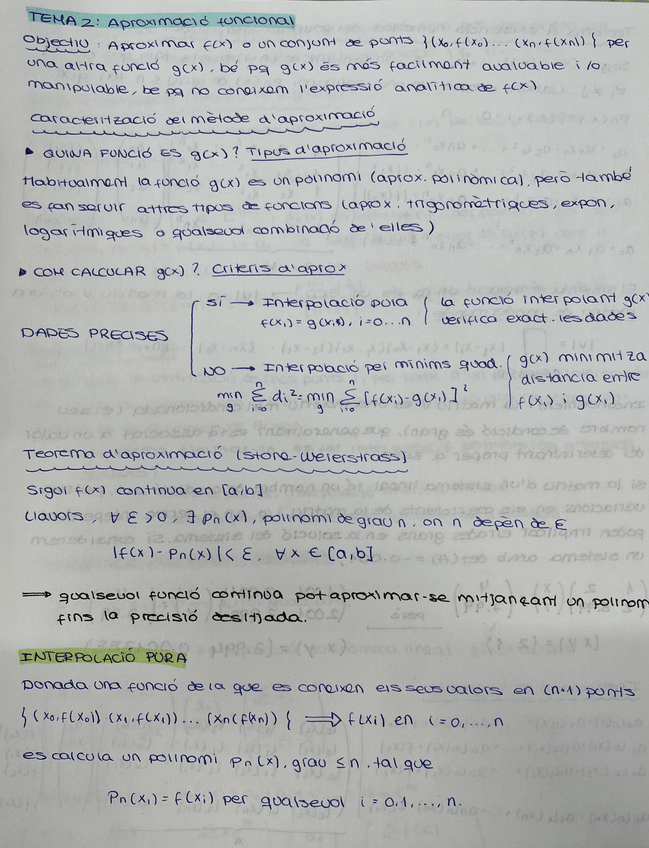 TEMA 2: Aproximació funcional
Objectiu: Aproximar f(x) o un conjunt de punts {(x₀, f(x₀)... (xₙ, f(xₙ)} per
una altra funció g(x), bé pq g(x) és més facilment avaluable i/o
manipulable, be pq no coneixem l'expressió analítica de f(x).
Caracterització del mètode d'aproximació
▸ QUINA FUNCIÓ ES g(x)? Tipus d'aproximació
Habitualment la funció g(x) es un polinomi (aprox. polinòmica), però també
es fan servir altres tipus de funcions (aprox. trigonomètriques, expon,
logarítmiques o qualsevol combinació de'elles)
▸ COM CALCULAR g(x)? Criteris d'aprox
SÍ → Interpolació pura { la funció interpolant g(x)
f(xᵢ) = g(xᵢ), i=0...n verifica exact. les dades
DADES PRECISES
NO → Interpolació per minims quad. { g(x) minimitza
min_g Σⁿᵢ₌₀ dᵢ² = min_g Σⁿᵢ₌₀ [f(xᵢ)-g(xᵢ)]² distància entre
f(xᵢ) i g(xᵢ)
Teorema d'aproximació (Stone-Weierstrass)
Sigui f(x) continua en [a,b]
Llavors, ∀ ε > 0, ∃ Pₙ(x), polinomi de grau n, on n depèn de ε
|f(x) - Pₙ(x)| < ε, ∀ x ∈ [a,b].
⟹ qualsevol funció continua pot aproximar-se mitjançant un polinom
fins la precisió desitjada.
INTERPOLACIÓ PURA
Donada una funció de la que es coneixen els seus valors en (n+1) punts
{(x₀, f(x₀)) (x₁, f(x₁)) ... (xₙ(f(xₙ)) } ⟹ f(xᵢ) en i = 0, ..., n
es calcula un polinomi Pₙ(x), grau ≤ n, tal que
Pₙ(xᵢ) = f(xᵢ) per qualsevol i = 0,1, ..., n.